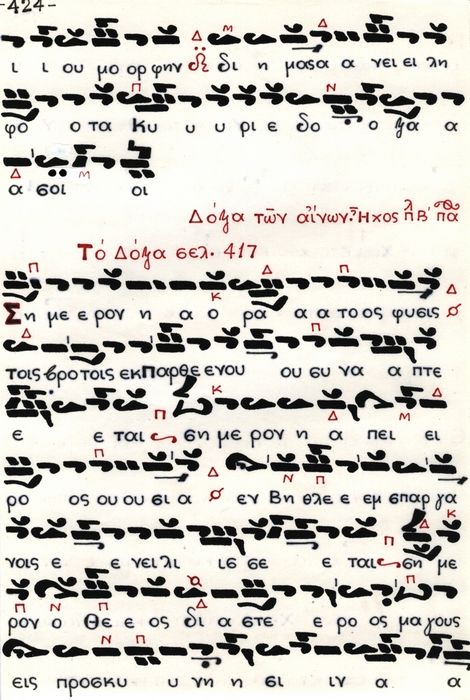 -424-
ι ι ου μο ορ φην δι η μας α α νει ει λη
φο ο τα Κυ υ υ ρι ε δο ο ξα α
α σοι οι
Δόξα τῶν αἴνων Ἦχος πλ Β΄ πα
Τό Δόξα σελ. 417
Ση με ε ρον η α ο ρα α α τος ος φυσις
τοις βροτοις εκ Παρθε ενου ου συ να α πτε
ε ε ται ση με ρον η α πει ει
ρο ος ου ου σι α εν Βη θλε ε εμ σπαρ γα
νοις ε ε νει λι ισ σε ε ται ση με
ρον ο Θε ε ος δι α στε ε ρος μα γους
εις προσκυ υ νη η σι ιν α α